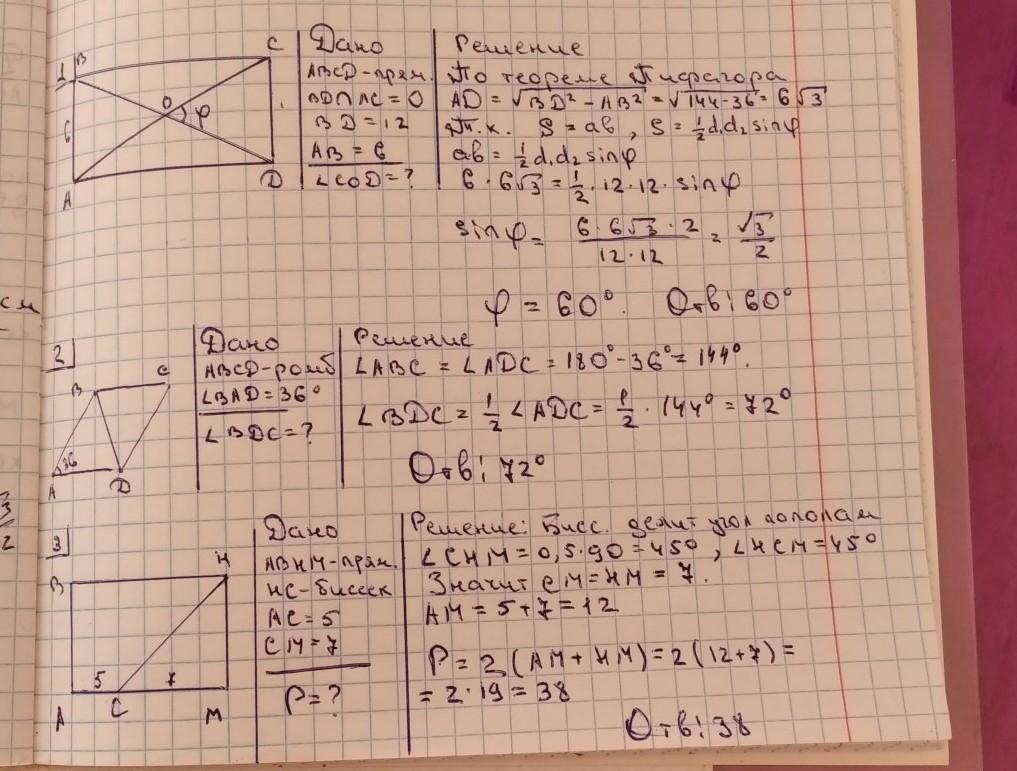 см
3
2
1
B
C
O
φ
6
A
D
Дано
ABCD-прям.
BD∩AC=O
BD=12
AB=6
∠COD=?
Решение
По теореме Пифагора
AD=√BD²-AB²=√144-36=6√3
Т.к. S=ab, S=½d₁d₂sinφ
ab=½d₁d₂sinφ
6·6√3=½·12·12·sinφ
sinφ= 6·6√3·2 / 12·12 = √3/2
φ=60°. Отв: 60°
2
B
C
36
A
D
Дано
ABCD-ромб
∠BAD=36°
∠BDC=?
Решение
∠ABC=∠ADC=180°-36°=144°.
∠BDC=½∠ADC=½·144°=72°
Отв: 72°
3
B
H
5
7
A
C
M
Дано
ABHM-прям.
HC-биссек
AC=5
CM=7
P=?
Решение: Бисс. делит угол пополам
∠CHM=0,5·90=45°, ∠HCM=45°
Значит CM=HM=7.
AM=5+7=12
P=2(AM+HM)=2(12+7)=
=2·19=38
Отв: 38